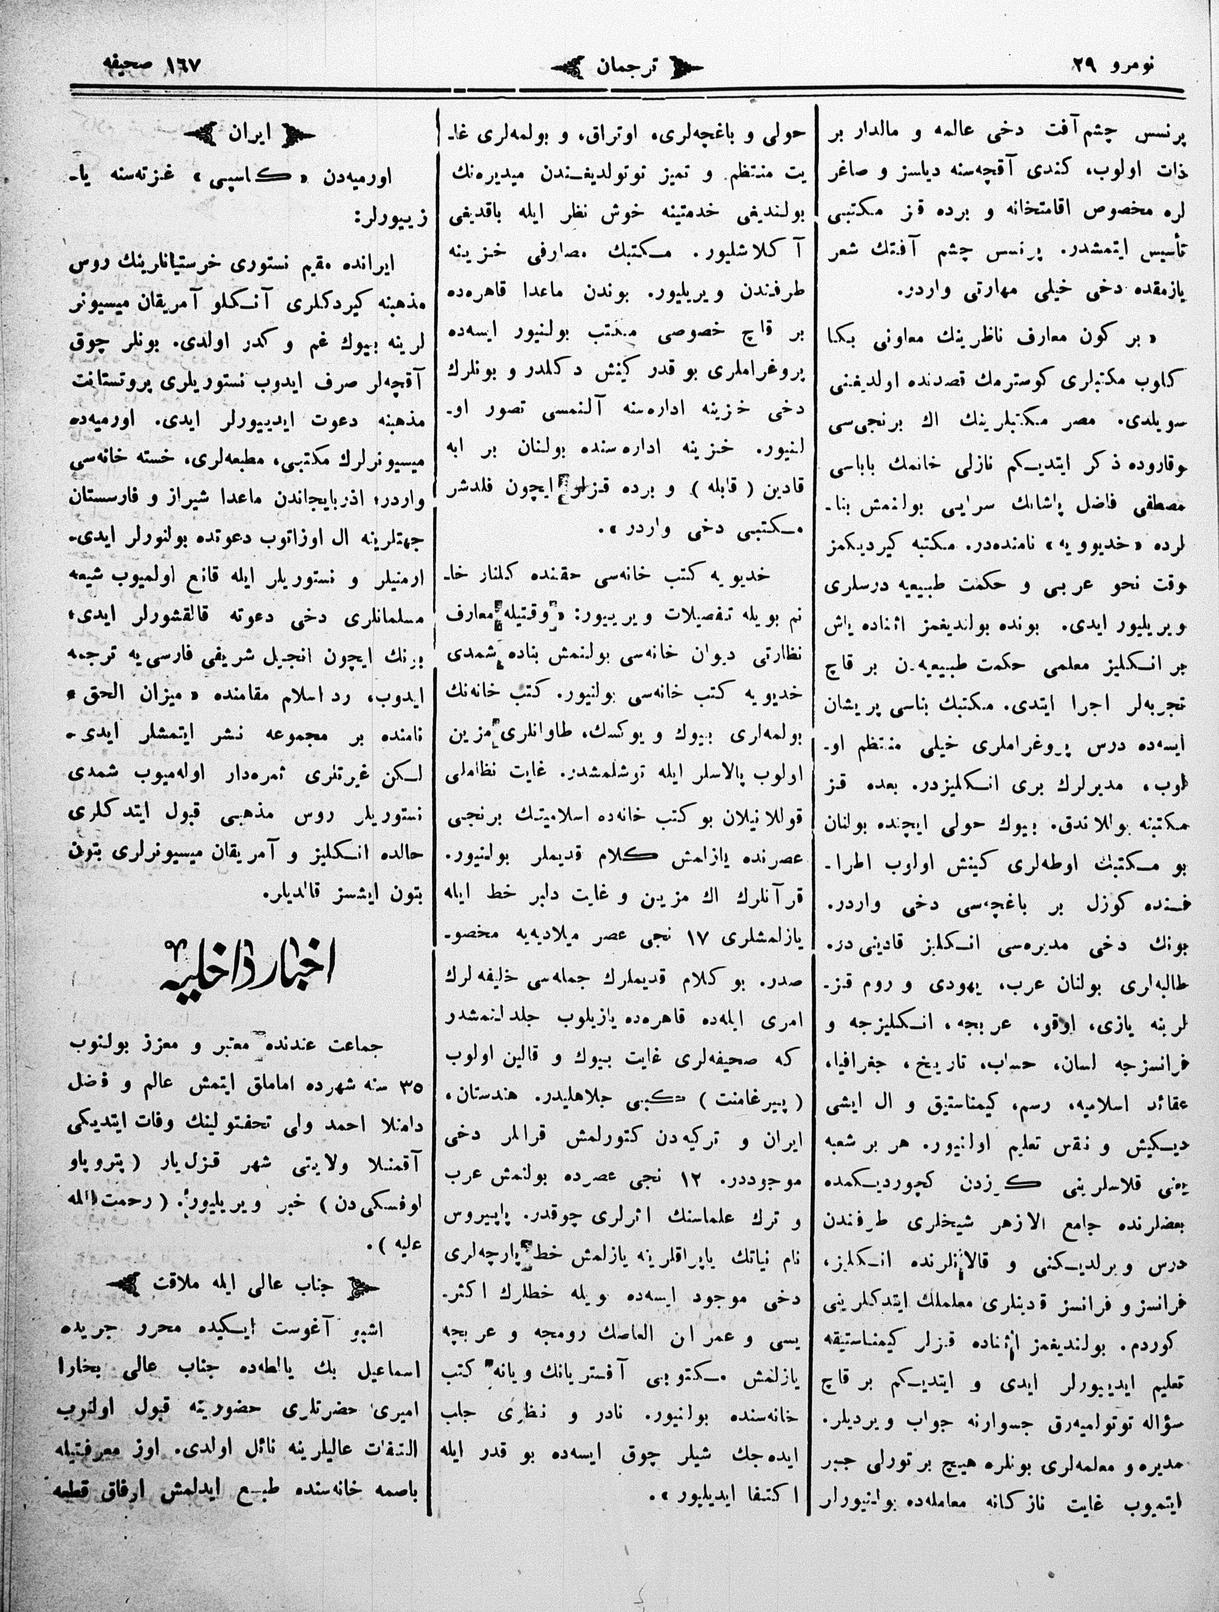 نومرو ٢٩
ترجمان
١٦٧ صحيفه
پرنسس چشم آفت دخی عالمه و مالدار بر
ذات اولوب، كندی آقچه‌سنه دیلسز و صاغر
لره مخصوص اقامتخانه و برده قز مكتبی
تأسیس ایتمشدر. پرنسس چشم آفتك شعر
یازمقده دخی خیلی مهارتی واردر.
« بر كون معارف ناظرینك معاونی بكا
كلوب مكتبلری كوسترمك قصدنده اولدیغنی
سویلدی. مصر مكتبلرینك اك برنجی‌سی
یوقاروده ذكر ایتدیكم نازلی خانمك باباسی
مصطفی فاضل پاشانك سرایی بولنمش بنا-
لرده «خدیوویه» نامنده‌در. مكتبه كیردیكمز
وقت نحو عربی و حكمت طبیعیه درسلری
ویریلیور ایدی. بونده بولندیغمز اثناده یاش
بر انكلیز معلمی حكمت طبیعیه‌دن بر قاچ
تجربه‌لر اجرا ایتدی. مكتبك بناسی پریشان
ایسه‌ده درس پروغراملری خیلی منتظم او-
لوب، مدیرلرك بری انكلیزدر. بعده قز
مكتبنه یوللاندق. بیوك حولی ایچنده بولنان
بو مكتبك اوطه‌لری كینش اولوب اطرا-
فنده كوزل بر باغچه‌سی دخی واردر.
بونك دخی مدیره‌سی انكلیز قادینی در.
طالبه‌لری بولنان عرب، یهودی و روم قز-
لرینه یازی، اوقو، عربجه، انكلیزجه و
فرانسزجه لسان، حساب، تاریخ، جغرافیا،
عقائد اسلامیه، رسم، كیمناستیق و ال ایشی
دیكیش و نقس تعلیم اولنیور. هر بر شعبه
یعنی قلاسلرینی كزدن كچوردیكمده
بعضلرنده جامع الازهر شیخلری طرفندن
درس ویرلدیكنی و قالانلرنده انكلیز،
فرانسز و فرانسز قدینلری معلملك ایتدكلرینی
كوردم. بولندیغمز اثناده قزلر كیمناستیقه
تعلیم ایدییورلر ایدی و ایتدیكم بر قاچ
سؤاله توتولمیه‌رق جسوارنه جواب ویردیلر.
مدیره و معلمه‌لری بونلره هیچ بر تورلی جبر
ایتمیوب غایت نازكانه معامله‌ده بولنیورلر
حولی و باغچه‌لری، اوتراق، و بولمه‌لری غا-
یت منتظم و تمیز توتولدیغندن میدیره‌نك
بولندیغی خدمتینه خوش نظر ایله باقدیغی
آكلاشلیور. مكتبك مصارفی خزینه
طرفندن ویریلیور. بوندن ماعدا قاهره‌ده
بر قاچ خصوصی مكتب بولنیور ایسه‌ده
پروغراملری بو قدر كینش دكلدر و بونلرك
دخی خزینه اداره‌سنه آلنمسی تصور او-
لنیور. خزینه اداره‌سنده بولنان بر ابه
قادین ( قابله ) و برده قزلر ایچون فلدشر
مكتبی دخی واردر ».
خدیویه كتب خانه‌سی حقنده كلنار خا-
نم بویله تفصیلات ویرییور: « وقتیله معارف
نظارتی دیوان خانه‌سی بولنمش بناده شمدی
خدیویه كتب خانه‌سی بولنیور. كتب خانه‌نك
بولمه‌لری بیوك و یوكسك، طاوانلری مزین
اولوب پالاسلر ایله توشلمشدر. غایت نظاملی
قوللانیلان بو كتب خانه‌ده اسلامیتك برنجی
عصرنده یازلمش كلام قدیملر بولنیور.
قرآنلرك اك مزین و غایت دلبر خط ایله
یازلمشلری ١٧ نجی عصر میلادیه‌یه مخصو-
صدر. بو كلام قدیملرك جمله‌سی خلیفه لرك
امری ایله‌ده قاهره‌ده یازیلوب جلدلنمشدر
كه صحیفه‌لری غایت بیوك و قالین اولوب
( پیرغامنت ) كبی جلاهلیدر. هندستان،
ایران و تركیه‌دن كتورلمش قرالمر دخی
موجوددر. ١٢ نجی عصرده بولنمش عرب
و ترك علماسنك اثرلری چوقدر. پاپیروس
نام نیاتك یاپراقلرینه یازلمش خط پارچه‌لری
دخی موجود ایسه‌ده ویله خطلرك اكثر-
یسی و عمر ان العاصك رومجه و عربجه
یازلمش مكتوبی آفستریانك ویانه كتب
خانه‌سنده بولنیور. نادر و نظری جلب
ایده‌جك شیلر چوق ایسه‌ده بو قدر ایله
اكتفا ایدیلیور ».
ایران
اورمیه‌دن «كاسپی» غزته‌سنه یا-
زییورلر:
ایرانده مقیم نستوری خرستیانلرینك روس
مذهبنه كیردكلری آنكلو آمریقان میسیونر
لرینه بیوك غم و كدر اولدی. بونلر چوق
آقچه‌لر صرف ایدوب نستوریلری پروتستانت
مذهبنه دعوت ایدییورلر ایدی. اورمیه‌ده
میسیونرلرك مكتبی، مطبعه‌لری، خسته خانه‌سی
واردر؛ اذربایجاندن ماعدا شیراز و فارسستان
جهتلرینه ال اوزاتوب دعوتده بولنورلر ایدی.
ارمنیلر و نستوریلر ایله قانع اولمیوب شیعه
مسلمانلری دخی دعوته قالقشورلر ایدی؛
بونك ایچون انجیل شریفی فارسی‌یه ترجمه
ایدوب، رد اسلام مقامنده « میزان الحق »
نامنده بر مجموعه نشر ایتمشلر ایدی.
لكن غیرتلری ثمره‌دار اوله‌میوب شمدی
نستوریلر روس مذهبی قبول ایتدكلری
حالده انكلیز و آمریقان میسیونرلری بتون
بتون ایشسز قالدیلر.
اخبار داخلیه
جماعت عندنده معتبر و معزز بولنوب
٣٥ سنه شهرده اماملق ایتمش عالم و فضل
داملا احمد ولی تحفتولینك وفات ایتدیكی
آقمنلا ولایتی شهر قزلیار ( پتروپاو
لوفسكی‌دن ) خبر ویریلیور. ( رحمت الله
علیه ).
جناب عالی ایله ملاقت
اشبو آغوست ایكیده محرر جریده
اسماعیل بك یالطه‌ده جناب عالی بخارا
امیری حضرتلری حضورینه قبول اولنوب
التفات عالیلرینه نائل اولدی. اوز معرفتیله
باصمه خانه‌سنده طبع ایدلمش ارفاق قطعه